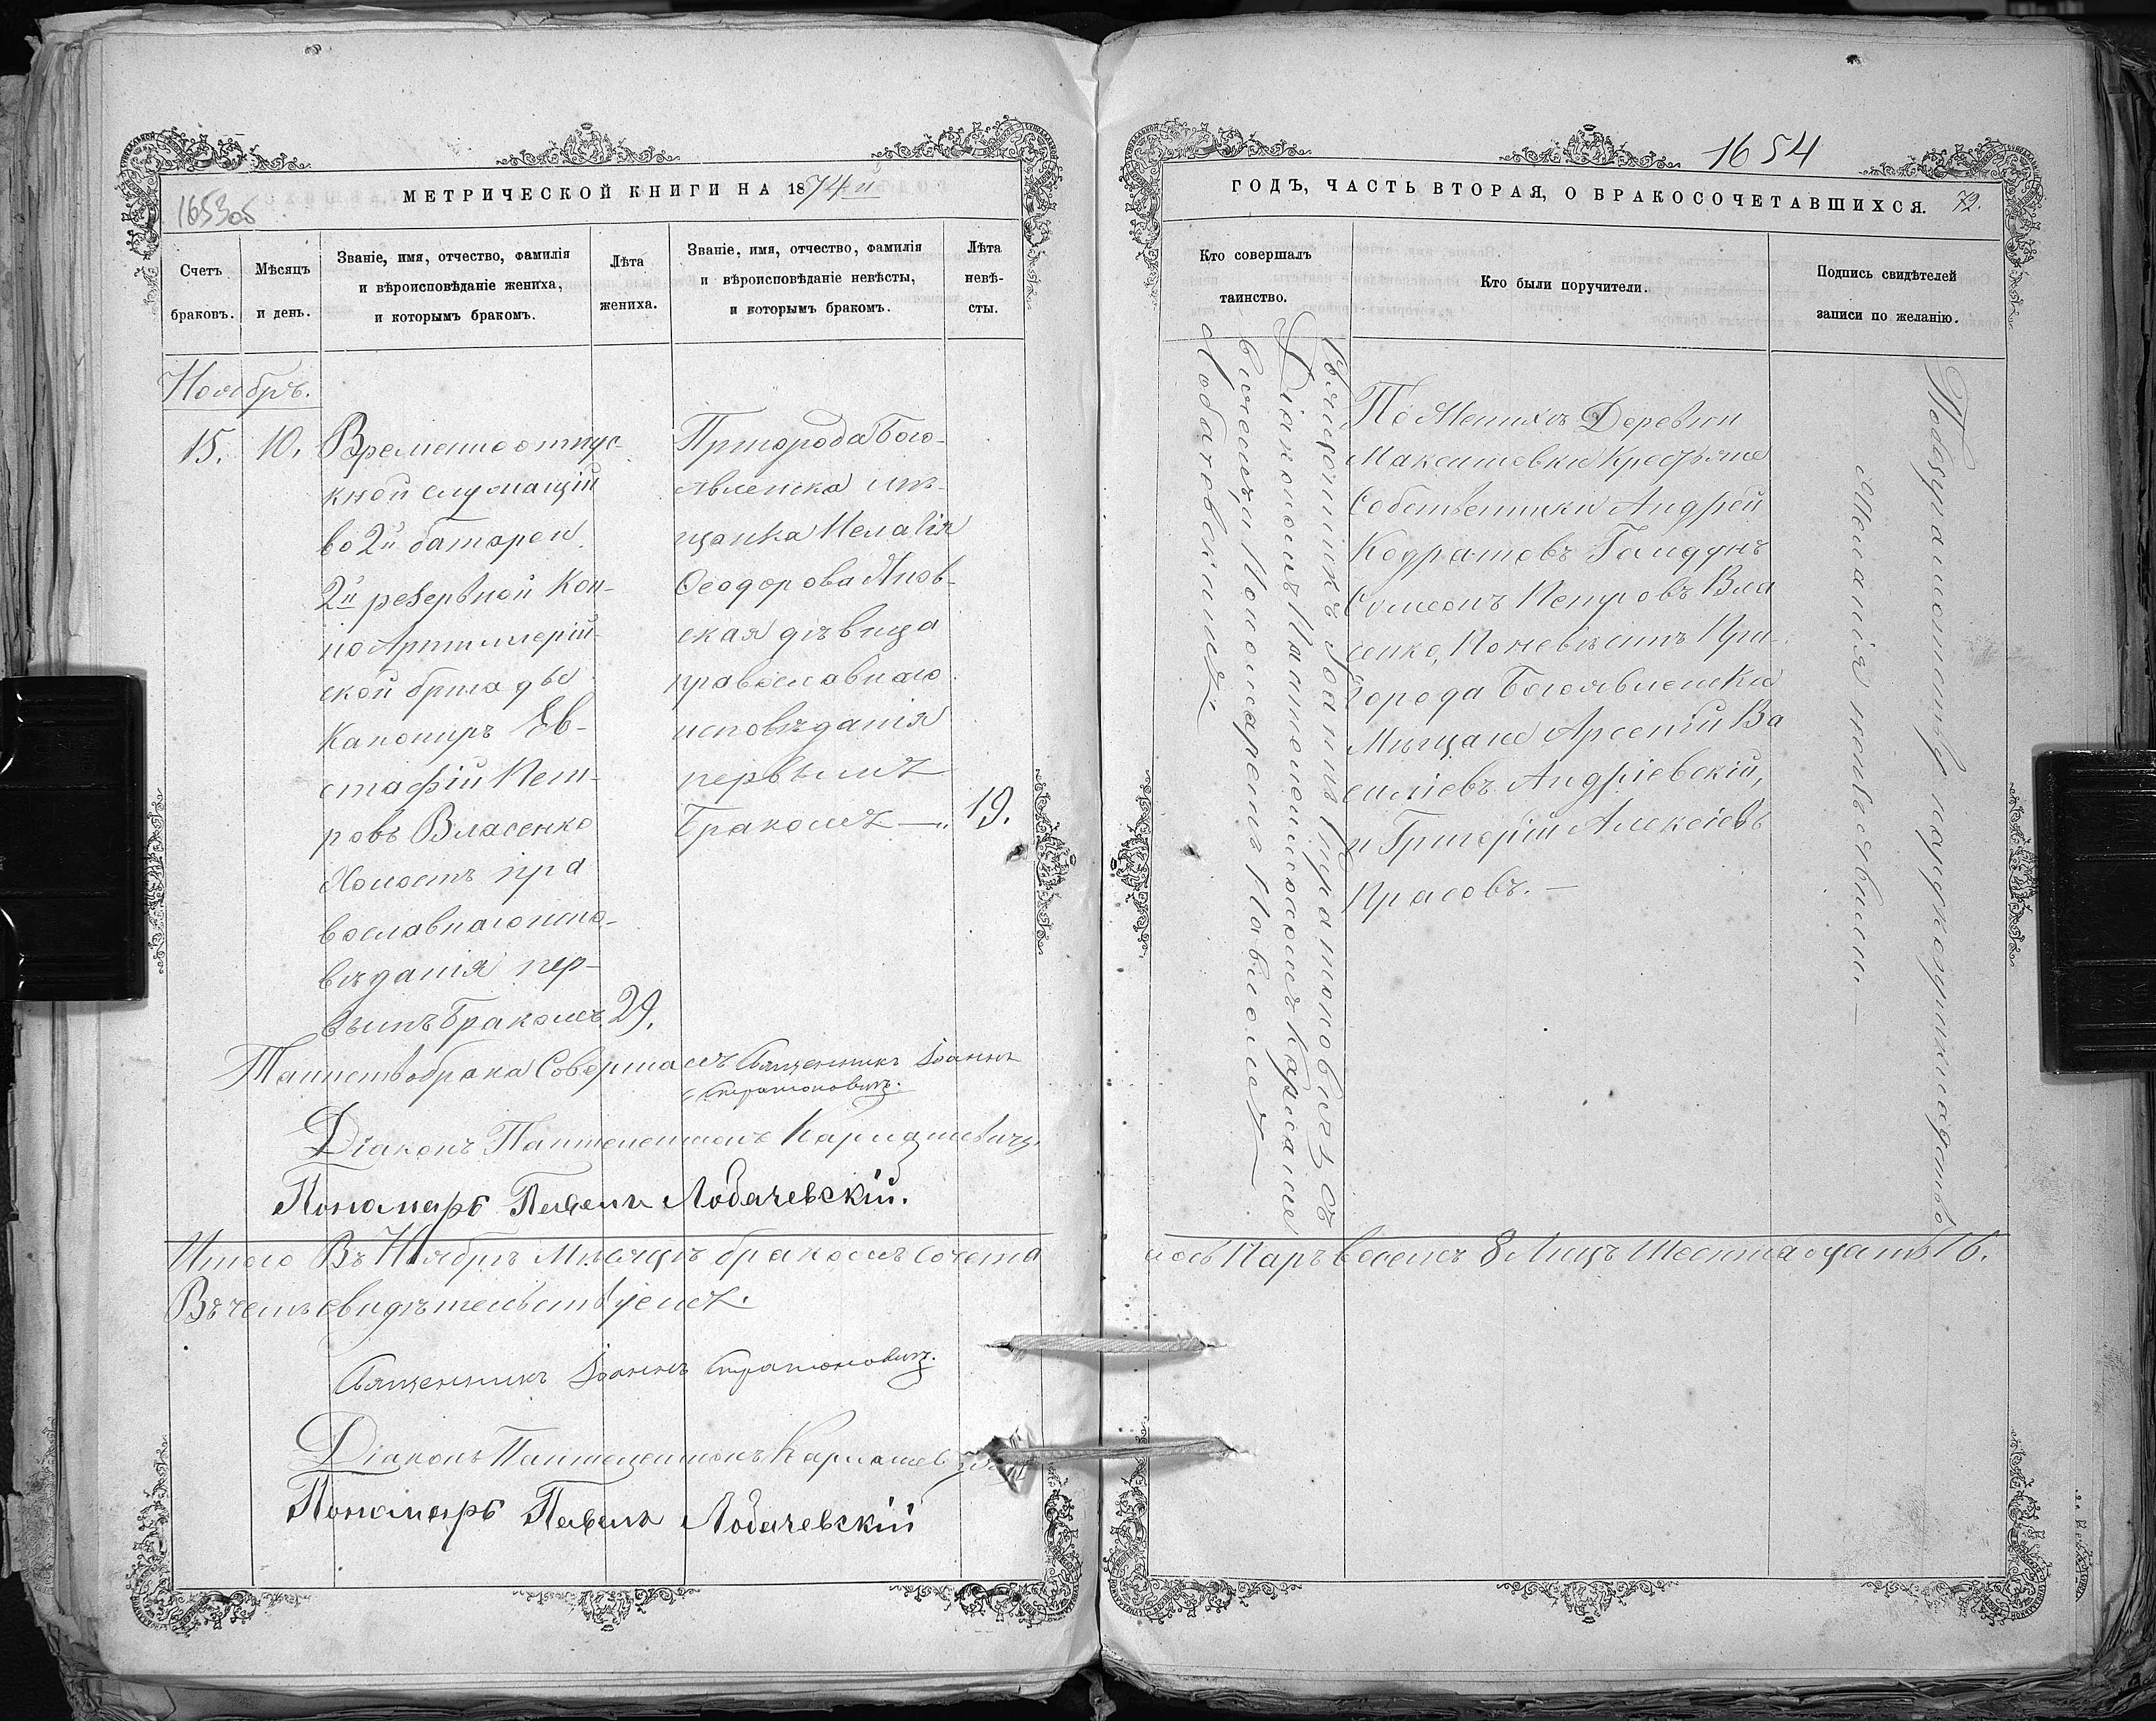 1653об
МЕТРИЧЕСКОЙ КНИГИ НА 1874й
Счетъ
браковъ.
Мѣсяцъ
и день.
Званіе, имя, отчество, фамилія
и вѣроисповѣданіе жениха,
и которымъ бракомъ.
Лѣта
жениха.
Званіе, имя, отчество, фамилія
и вѣроисповѣданіе невѣсты,
и которымъ бракомъ.
Лѣта
невѣ-
сты.
Ноябрь.
15.
10.
Временно отпус
кной служащій
во 2й батареи
2й резервной Кон-
но Артиллерій-
ской бригады
Канониръ Ев-
стафій Пет-
ровъ Власенко
Холостъ пра
вославнаго испо-
вѣданія пер-
вымъ бракомъ
29.
Пригорода Бого-
явленска мѣ-
щанка Пелагія
Феодорова Янов-
ская дѣвица
православнаго
исповѣданія
первымъ
Бракомъ —
19.
Таинство брака Совершалъ Священникъ Іоаннъ
Стратоновичъ.
Діаконъ Пантелеимонъ Кармазинъ
Пономарь Павелъ Лобачевскій.
Итого Въ Ноябрѣ Мѣсяцѣ бракомъ сочета
Въ чемъ свидѣтельствуемъ.
Священникъ Іоаннъ Стратоновичъ.
Діаконъ Пантелеимонъ
Пономарь Павелъ Лобачевскій
1654
ГОДЪ, ЧАСТЬ ВТОРАЯ, О БРАКОСОЧЕТАВШИХСЯ.
72.
Кто совершалъ
таинство.
Кто были поручители.
Подпись свидѣтелей
записи по желанію.
Священникъ Іоаннъ Стратоновичъ съ
Діакономъ Пантелеимономъ
и Пономаремъ Павломъ
Лобачевскимъ
По Женихѣ Деревни
Максимовки Крестьяне
Собственники Андрей
Кодратовъ Гайдунъ
Симеонъ Петровъ Вла
сенко, По невѣстѣ При-
города Богоявленска
Мѣщане Арсеній Ва
силіевъ Андріевскій,
и Григорій Алексіевъ
Красовъ. —
Желанія неизъявили. —
лось Паръ всѣхъ 8 Лицъ Шестнадцать 16.